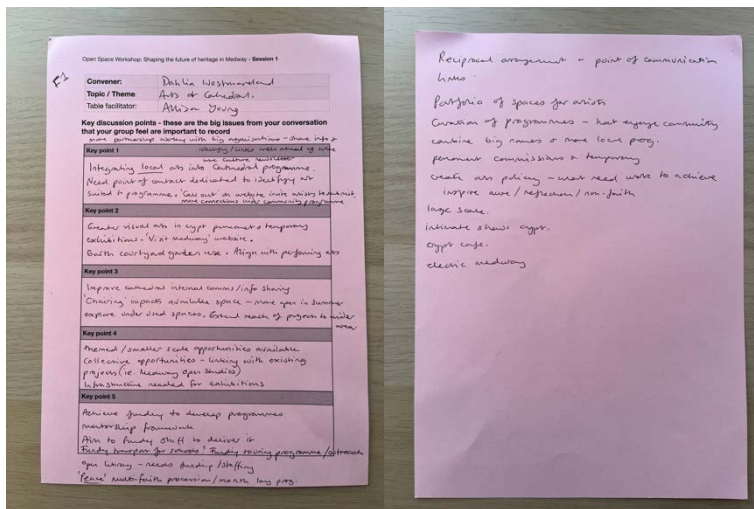 Open Space Workshop: Shaping the future of heritage in Medway - Session 1
F1
Convener: Dahlia Westmoreland
Topic / Theme: Arts at Cathedral.
Table facilitator: Allison Young
Key discussion points - these are the big issues from your conversation
that your group feel are important to record
more partnership working with big organisations - share info &
identify/links well ahead of time
Key point 1
use culture newsletter
Integrating local arts into Cathedral programme.
Need point of contact dedicated to identifying art
suited to programme. 'Call out' on website invite artists to submit,
more connections under community programme
Key point 2
Greater visual arts in crypt permanent & temporary
exhibitions. 'Visit Medway' website.
courtyard garden use. Align with performing arts
Key point 3
Improve cathedral internal comms/info sharing
'Chairing' impacts available space - more open in summer
explore under used spaces. Extend reach of projects to wider
area.
Key point 4
themed / smaller scale opportunities available
Collective opportunities - linking with existing
projects (ie. Medway Open Studios)
Infrastructure needed for exhibitions
Key point 5
Achieve funding to develop programmes
mentorship framework
Aim to funding staff to deliver it
Funding transport for schools? Funding touring programme/outreach
open library - needs funding/staffing
'Peace' multi-faith procession/month long prog.
Reciprocal arrangement - point of communication
links.
Portfolio of spaces for artists
Curation of programmes - that engage community
combine big names & more local prog.
permanent commissions & temporary
create arts policy - what need work to achieve
inspire awe / reflection / non-faith
large scale.
intimate shows crypt.
crypt cafe.
electric medway